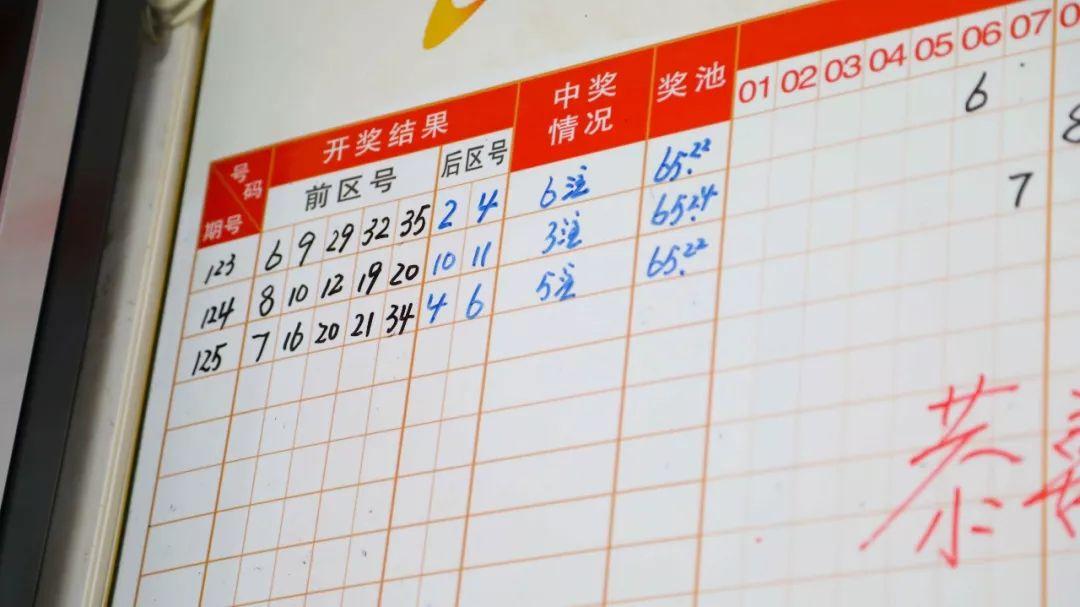 号码 期号 开奖结果 中奖情况 奖池 01 02 03 04 05 06 07
前区号 后区号
123 6 9 29 32 35 2 4 6注 65.22 6
124 8 10 12 19 20 10 11 3注 65.24 8
125 7 16 20 21 34 4 6 5注 65.22 7
恭喜